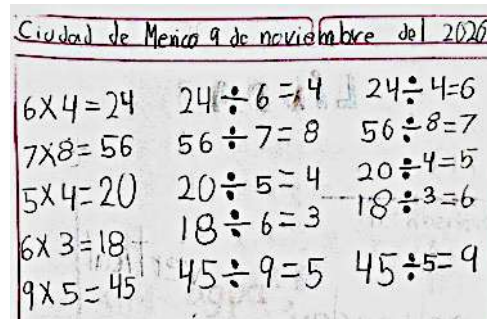 Ciudad de Mexico 9 de noviembre del 2026
6x4=24 24÷6=4 24÷4=6
7x8=56 56÷7=8 56÷8=7
5x4=20 20÷5=4 20÷4=5
6x3=18 18÷6=3 18÷3=6
9x5=45 45÷9=5 45÷5=9